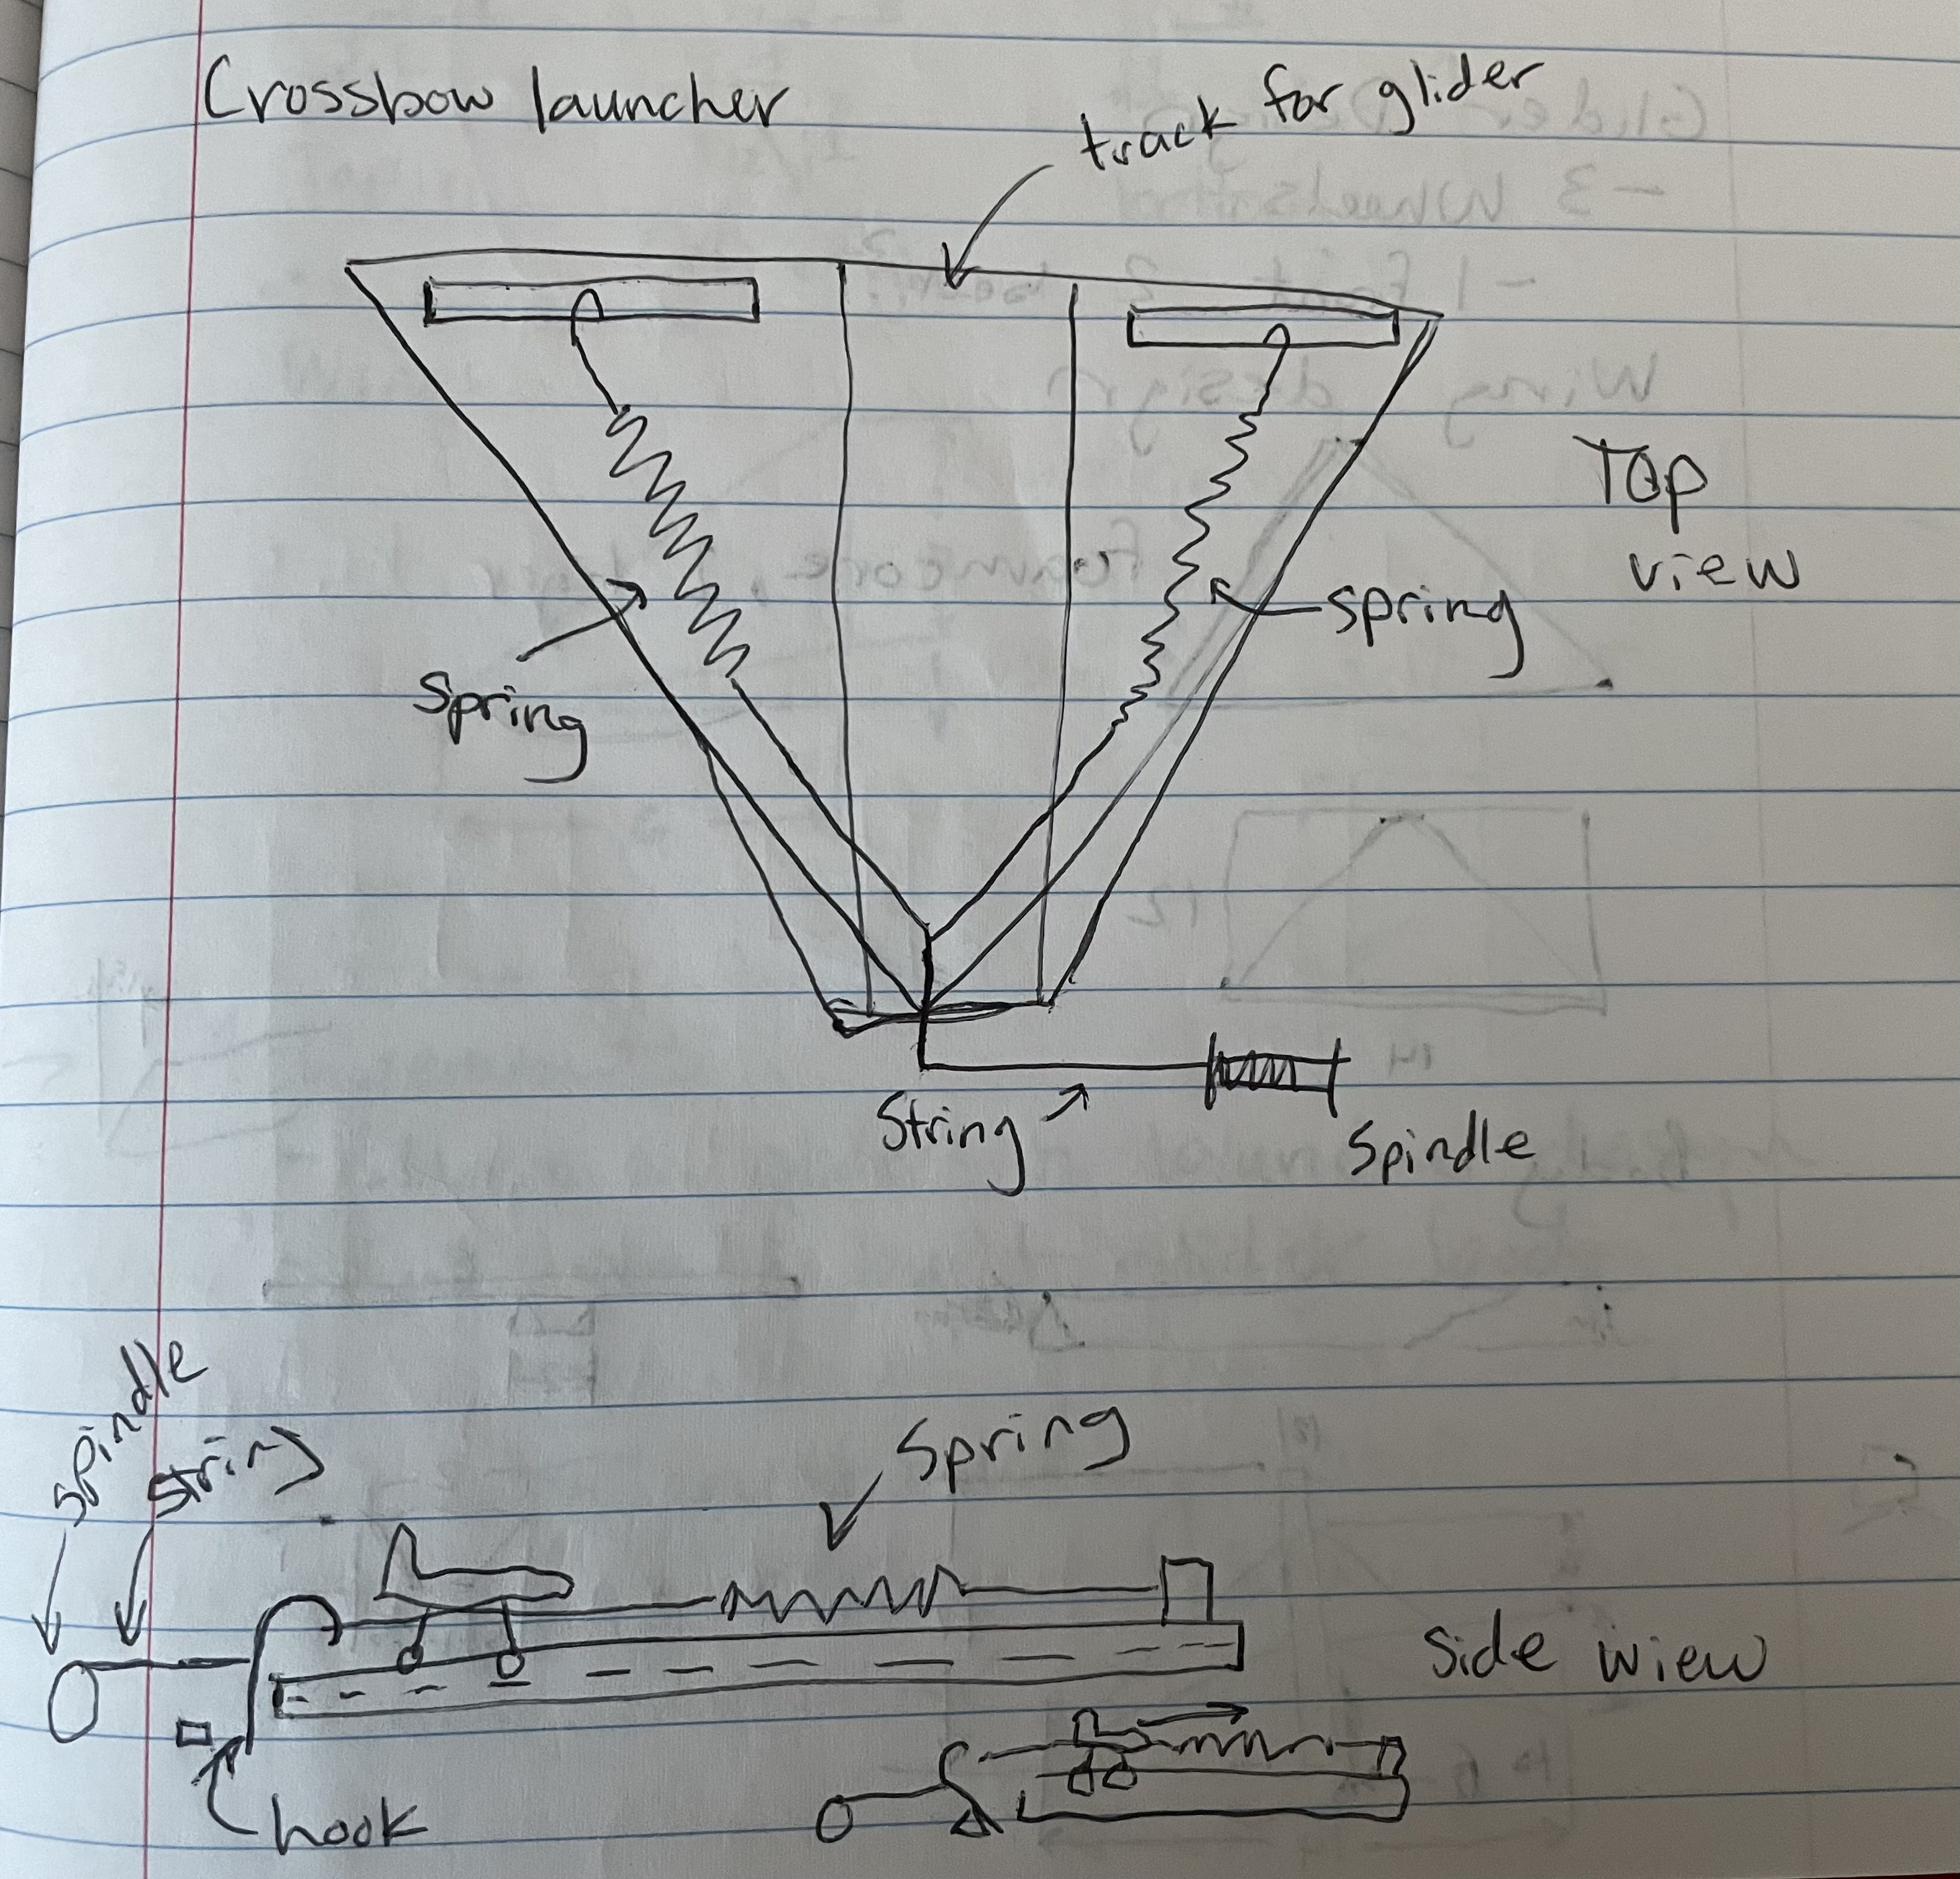 Crossbow launcher
track for glider
Top
view
Spring
Spring
String
Spindle
Spindle
String
Spring
Side wiew
hook